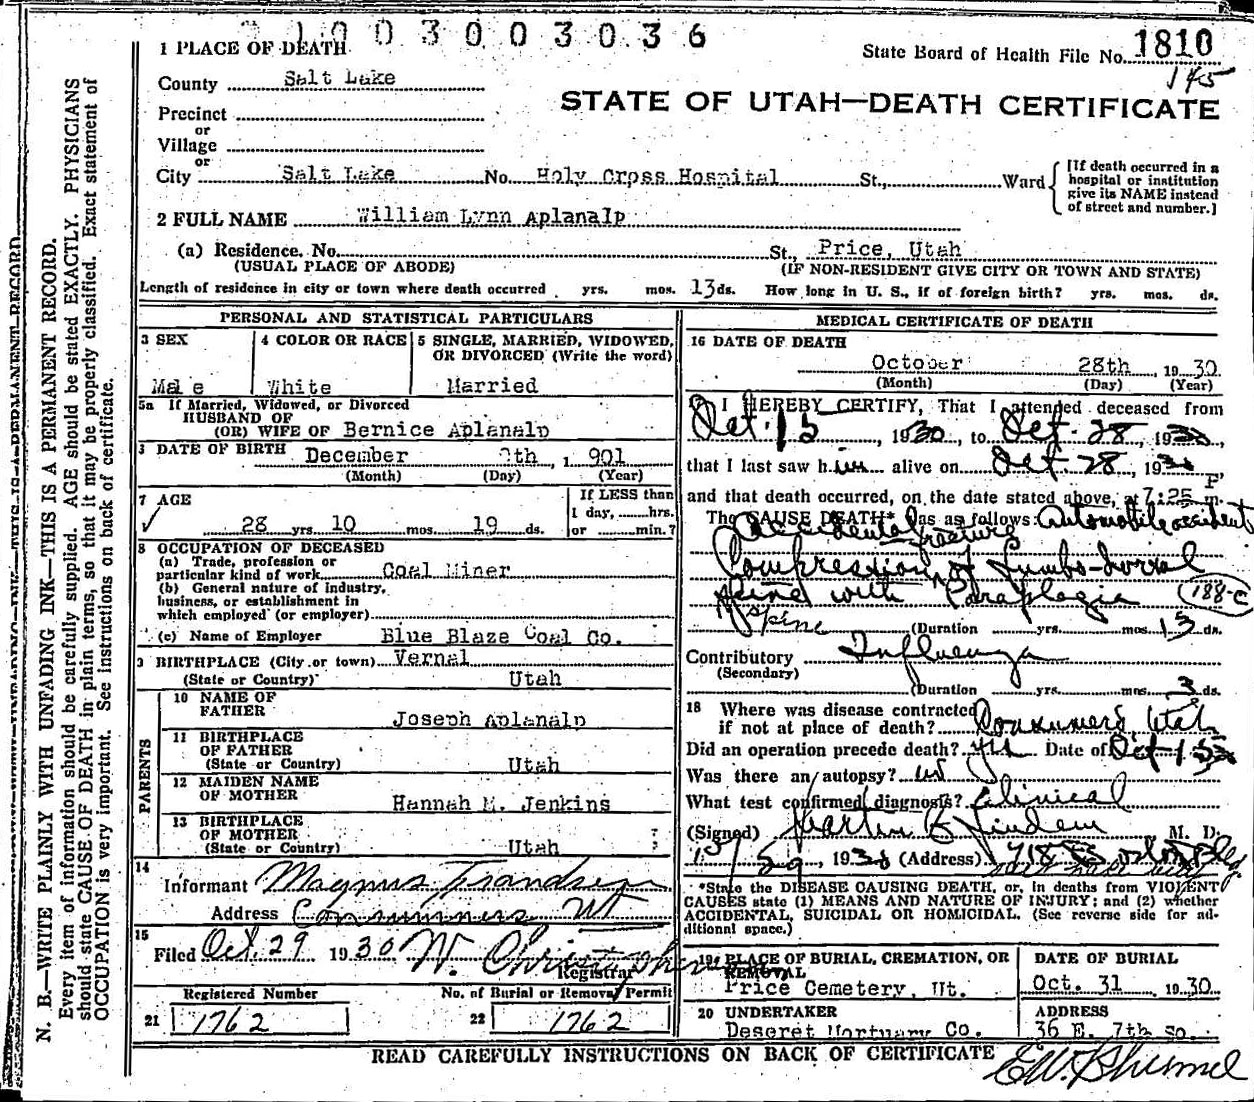 1 0 0 3 0 0 3 0 3 6
1 PLACE OF DEATH
State Board of Health File No. 1810
145
County Salt Lake
STATE OF UTAH—DEATH CERTIFICATE
Precinct
or
Village
or
City Salt Lake No. Holy Cross Hospital St., Ward
[If death occurred in a hospital or institution give its NAME instead of street and number.]
2 FULL NAME William Lynn Aplanalp
(a) Residence. No. St., Price, Utah
(USUAL PLACE OF ABODE) (IF NON-RESIDENT GIVE CITY OR TOWN AND STATE)
Length of residence in city or town where death occurred yrs. mos. 13 ds. How long in U. S., if of foreign birth? yrs. mos. ds.
PERSONAL AND STATISTICAL PARTICULARS
3 SEX 4 COLOR OR RACE 5 SINGLE, MARRIED, WIDOWED, OR DIVORCED (Write the word)
Male White Married
5a If Married, Widowed, or Divorced
HUSBAND OF
(OR) WIFE OF Bernice Aplanalp
DATE OF BIRTH December th, 1 901
(Month) (Day) (Year)
7 AGE
If LESS than
1 day, hrs.
28 yrs 10 mos. 19 ds. or min.?
8 OCCUPATION OF DECEASED
(a) Trade, profession or
particular kind of work Coal Miner
(b) General nature of industry,
business, or establishment in
which employed (or employer)
(c) Name of Employer Blue Blaze Coal Co.
9 BIRTHPLACE (City or town) Vernal
(State or Country) Utah
PARENTS
10 NAME OF
FATHER Joseph Aplanalp
11 BIRTHPLACE
OF FATHER
(State or Country) Utah
12 MAIDEN NAME
OF MOTHER Hannah M. Jenkins
13 BIRTHPLACE
OF MOTHER
(State or Country) Utah
14
Informant Magnus Frandsen
Address Consumers Ut
15
Filed Oct. 29 1930 W. Christopherson
Registrar
Registered Number No. of Burial or Removal Permit
21 1762 22 1762
MEDICAL CERTIFICATE OF DEATH
16 DATE OF DEATH
October 28th 1930
(Month) (Day) (Year)
17 I HEREBY CERTIFY, That I attended deceased from
Oct. 15, 1930, to Oct. 28, 1930
that I last saw him alive on Oct. 28, 1930
and that death occurred, on the date stated above, at 7:25 P. m.
The CAUSE DEATH* as as follows: Automobile accident
Accidental fracture
Compression of Lumbo-dorsal
spine with Paraplegia 188-c
Spine (Duration yrs. mos. 13 ds.
Contributory Influenza
(Secondary)
(Duration yrs. mos. 3 ds.
18 Where was disease contracted
if not at place of death? Consumers Utah
Did an operation precede death? yes Date of Oct 15
Was there an autopsy? no
What test confirmed diagnosis? Clinical
(Signed) Martin C Lindem M. D.
, 1930 (Address)
*State the DISEASE CAUSING DEATH, or, in deaths from VIOLENT
CAUSES state (1) MEANS AND NATURE OF INJURY; and (2) whether
ACCIDENTAL, SUICIDAL OR HOMICIDAL. (See reverse side for ad-
ditional space.)
19 PLACE OF BURIAL, CREMATION, OR REMOVAL DATE OF BURIAL
Price Cemetery, Ut. Oct. 31 1930
20 UNDERTAKER ADDRESS
Deseret Mortuary Co. 36 E. 7th So.
READ CAREFULLY INSTRUCTIONS ON BACK OF CERTIFICATE
N. B.—WRITE PLAINLY WITH UNFADING INK—THIS IS A PERMANENT RECORD.
Every item of information should be carefully supplied. AGE should be stated EXACTLY. PHYSICIANS
should state CAUSE OF DEATH in plain terms, so that it may be properly classified. Exact statement of
OCCUPATION is very important. See instructions on back of certificate.